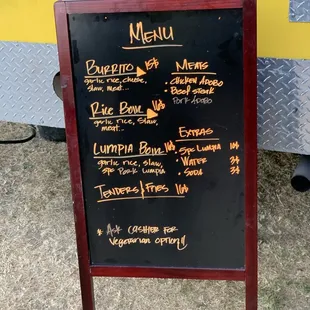 MENU
BURRITO 15$
garlic rice, cheese,
slaw, meat...
RICE BOWL 16$
garlic rice, slaw,
meat...
LUMPIA BOWL 16$
garlic rice, slaw,
5pc Pork Lumpia
TENDERS & FRIES 16$
MEATS
• CHICKEN ADOBO
• Beef Steak
PORK ADOBO
EXTRAS
• 5pc Lumpia
• WATER 3$
• SODA 3$
* Ask CASHIER FOR
Vegetarian option!!